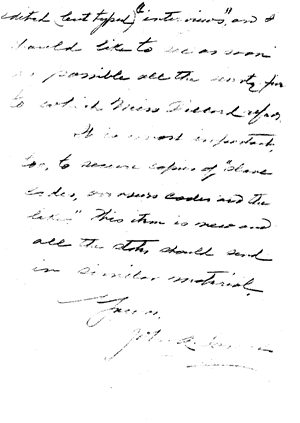 edited (but typed) "interviews", and I
should like to see as soon
as possible all the
to which Miss Dillard refers.
It is most important,
too, to secure copies of "slave
codes, overseers codes and the
like." This item is new and
all the states should send
in similar material.
Yours,
John A.